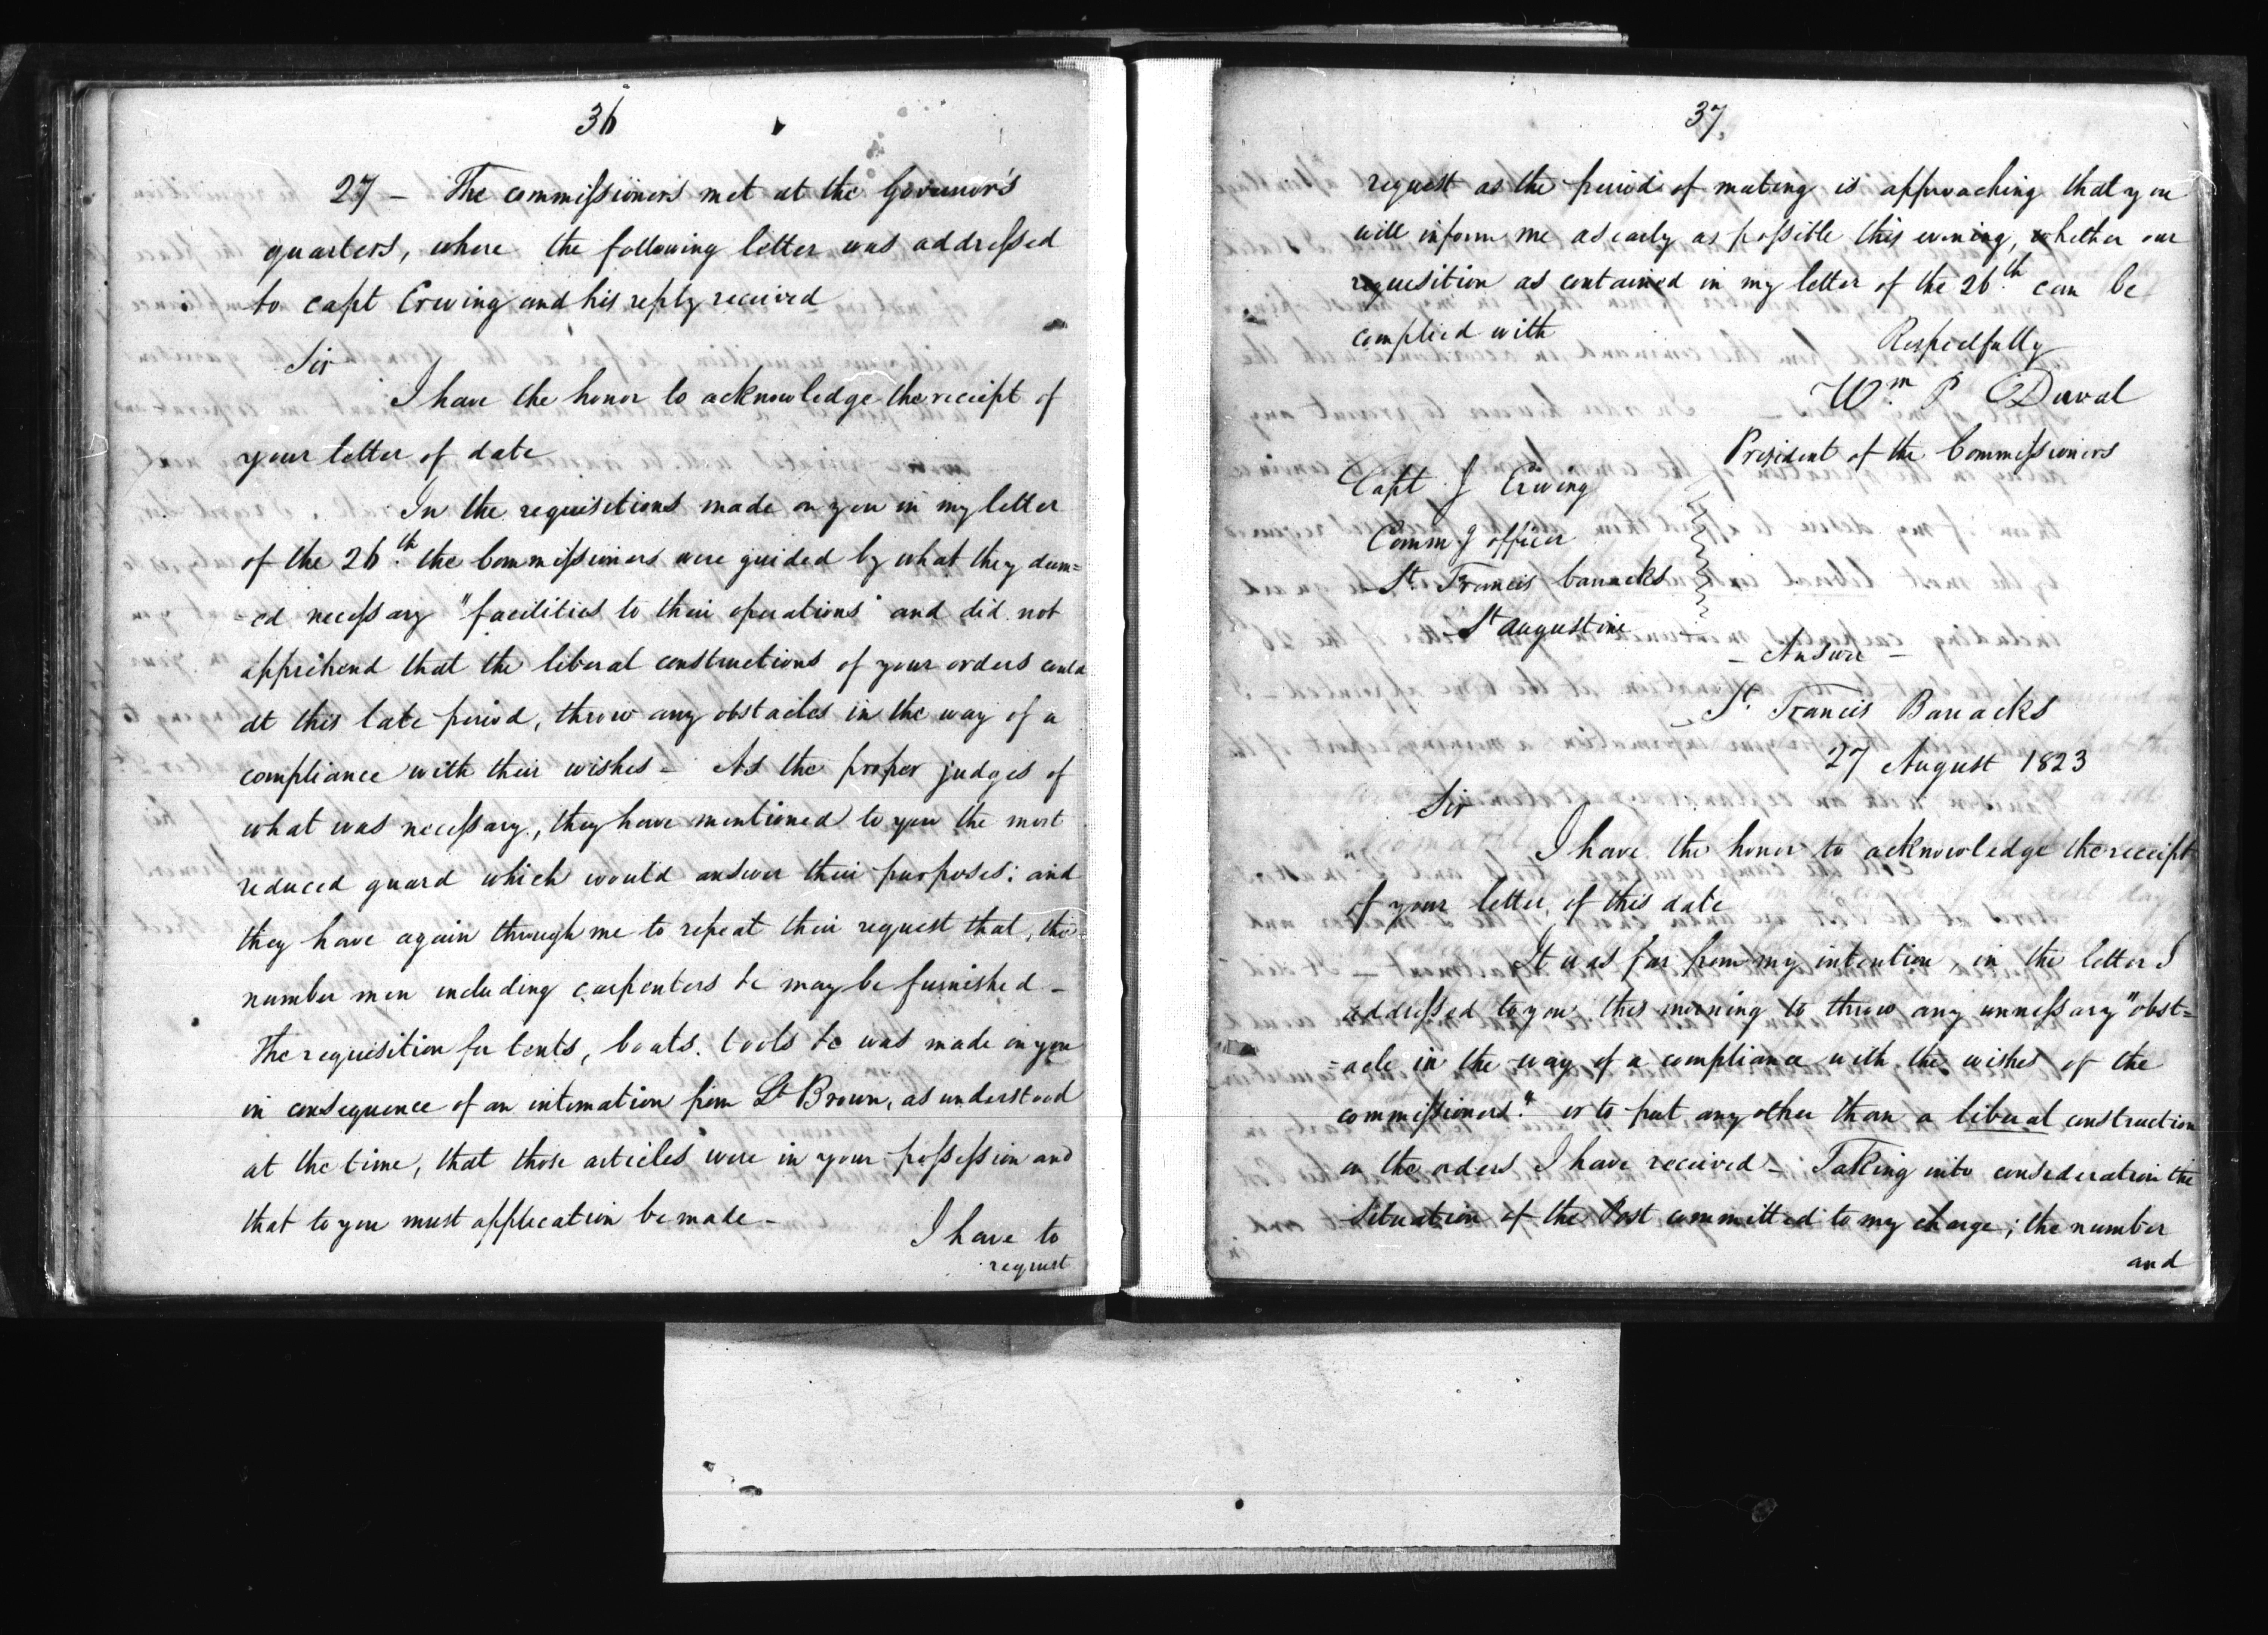 36
27 - The commissioners met at the Governor's
quarters, where the following letter was addressed
to capt Erving and his reply received
Sir
I have the honor to acknowledge the receipt of
your letter of date
In the requisitions made on you in my letter
of the 26th. the Commissioners were guided by what they deem=
-ed necessary "facilities to their operations" and did not
apprehend that the liberal constructions of your orders could
at this late period, throw any obstacles in the way of a
compliance with their wishes - As the proper judges of
what was necessary, they have mentioned to you the most
reduced guard which would answer their purposes: and
they have again through me to repeat their request that, the
number men including carpenters &c may be furnished -
The requisition for tents, boats. tools &c was made on you
in consequence of an intimation from Lt Brown, as understood
at the time, that those articles were in your possession and
that to you must application be made -
I have to
request
37
request as the period of meeting is approaching that you
will inform me as early as possible this evening, whether our
requisition as contained in my letter of the 26th. can be
complied with
Respectfully
Wm. P Duval
President of the Commissioners
Capt. J Erving
Comm.g officer
St. Francis barracks
St augustine
- Answer -
St. Francis Barracks
27 August 1823
Sir
I have the honor to acknowledge the receipt
of your letter, of this date
It was far from my intention in the letter I
addressed to you this morning to throw any unnessary "obst=
=acle in the way of a compliance with the wishes of the
commissioners." or to put any other than a liberal construction
on the orders I have received - Taking into consideration the
Situation of the Post committed to my charge; the number
and